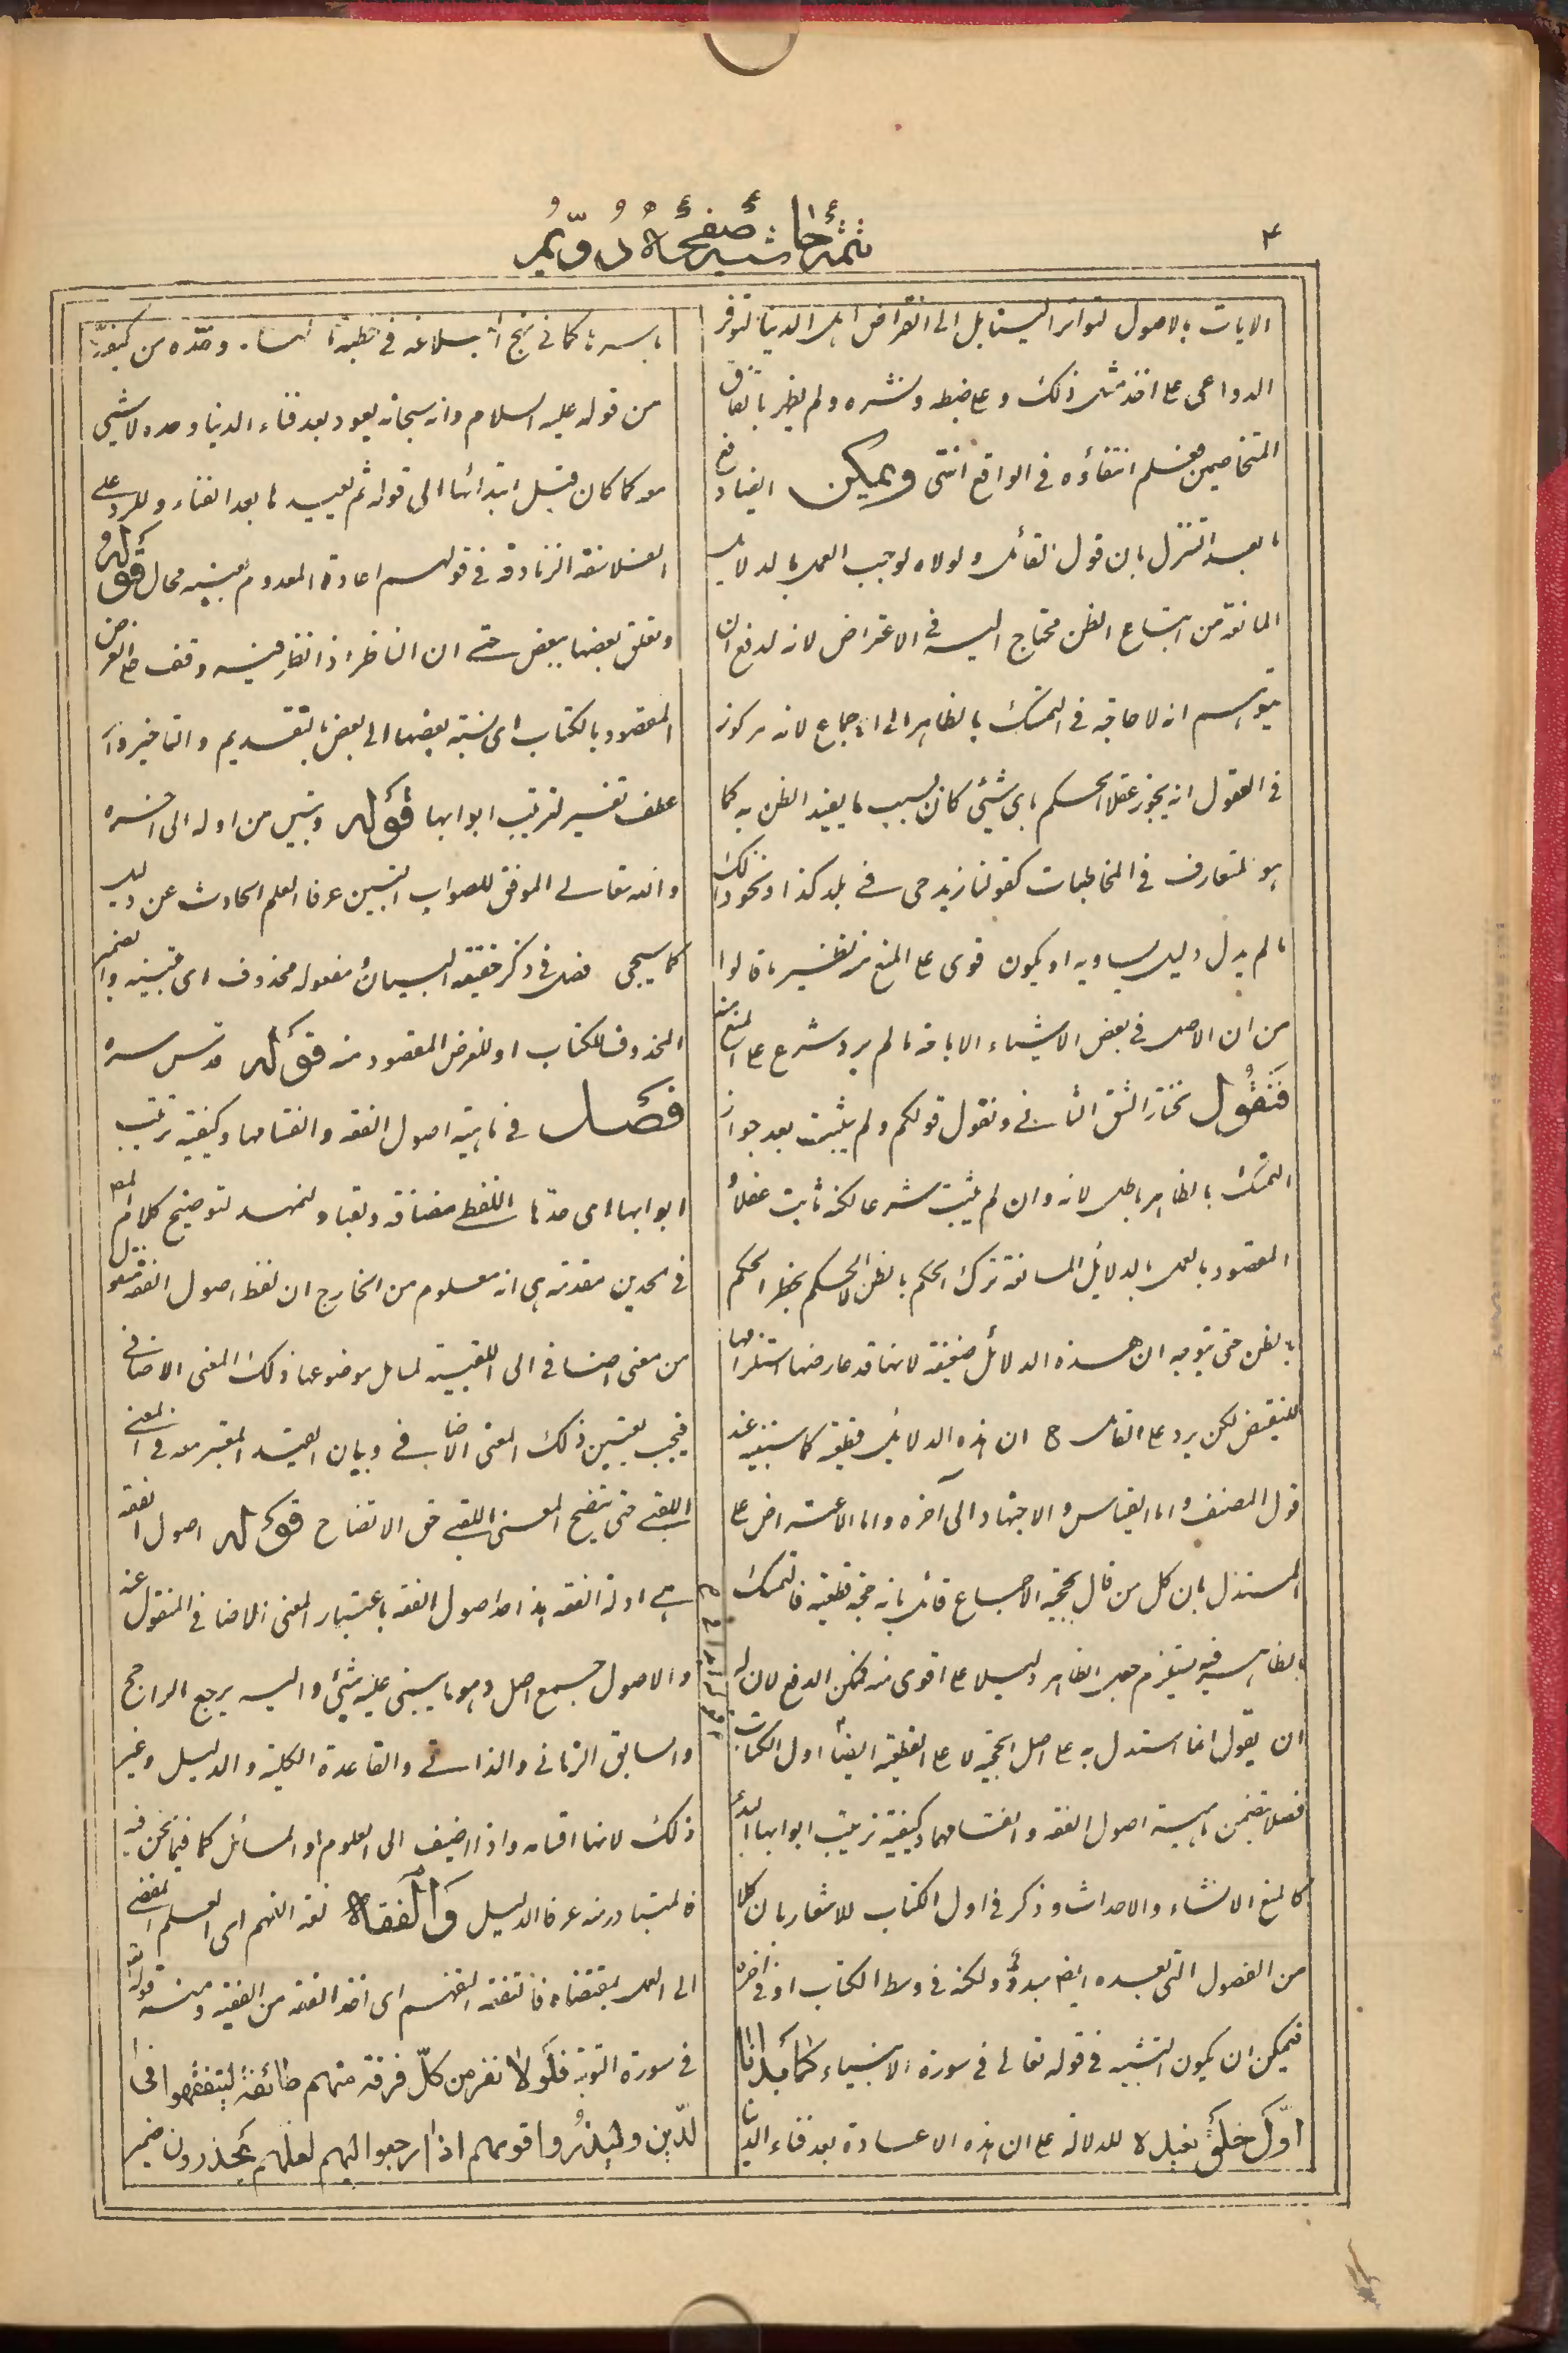 ۴
تتمه حاشیه صفحه دویم
الایات بالاصول لتواتر الیستابل الی انقراض اهل الدنیا لتوفر
الدواعی علی اخذ مثل ذلک و علی ضبطه و نشره و لم یظهر باتفاق
المتخاصمین فعلم انتفاؤه فی الواقع انتهی ویمکن ایضا دفع
ما بعد التنزل بان قول القائل و لولاه لوجب العمل بالدلایل
المانعة من اتباع الظن محتاج الیه فی الاعتراض لانه لدفع ان
یتوهم انه لا حاجة فی التمسک بالظاهر الی الاجماع لانه مرکوز
فی العقول انه یجوز عقلا الحکم بای شیئی کان بسبب ما یفید الظن به کما
هو المتعارف فی المخاطبات کقولنا زید حی فی بلد کذا و نحو ذلک
ما لم یدل دلیل یساویه او یکون قوی علی المنع منه نظیر ما قالوا
من ان الاصل فی بعض الاشیاء الاباحة ما لم یرد شرع علی المنع منه
فنقول نختار الشق الثانی و نقول قولکم و لم یثبت بعد جواز
التمسک بالظاهر باطل لانه و ان لم یثبت شرعا لکنه ثابت عقلا و
المقصود بالعمل بالدلایل المانعة ترک الحکم بالظن لا الحکم بحظر الحکم
بالظن حتی یتوجه ان هذه الدلائل ضعیفة لانها قد عارضها استلزامها
للنقیض لکن یرد علی القائل ح ان هذه الدلایل قطعیة کما سنبینه عند
قول المصنف و اما القیاس و الاجتهاد الی آخره و اما الاعتراض علی
المستدل بان کل من قال بحجیة الاجماع قائل بانه حجة قطعیة فالتمسک
بالظاهر فیه یستلزم جعل الظاهر دلیلا علی اقوی منه فممکن الدفع لان له
ان یقول انما استدل به علی اصل الحجیة لا علی القطعیة ایضا اول الکتاب
فصلا یتضمن ماهیة اصول الفقه و انقسامها و کیفیة ترتیب ابوابها البدأ
کالمنع الانشاء و الاحداث و ذکر فی اول الکتاب للاشعار بان کلا
من الفصول التی بعده ایضا مبدؤ و لکنه فی وسط الکتاب او فی اخره
فیمکن ان یکون التشبیه فی قوله تعالی فی سورة الانبیاء کما بدأنا
اول خلق نعیده للدلالة علی ان هذه الاعادة بعد فناء الدنیا
باسرها کما فی نهج البلاغة فی خطبة وحده من کیفه
من قوله علیه السلام و انه سبحانه یعود بعد فناء الدنیا وحده لا شیئی
معه کما کان قبل ابتدائها الی قوله ثم یعیدها بعد الفناء و للرد علی
الفلاسفة الزنادقة فی قولهم اعادة المعدوم بعینه محال قوله
و تعلق بعضها ببعض حتی ان الناظر اذا نظر فیه وقف علی الغرض
المقصود بالکتاب ای نسبة بعضها الی بعض بالتقدیم و التاخیر و
عطف تفسیر لترتیب ابوابها قوله و تبین من اوله الی اخره
و الله تعالی الموفق للصواب التبین عرفا العلم الحادث عن دلیل
کما سیجی فصل فی ذکر حقیقة البیان و مفعوله محذوف ای تبینه و الضمیر
المحذوف للکتاب او للغرض المقصود منه قوله قدس سره
فصل فی ماهیة اصول الفقه و انقسامها و کیفیة ترتیب
ابوابها ای حدها اللفظی مضافة و لقبا و لنمهد لتوضیح کلام المص
فی الحدین مقدمة هی انه معلوم من الخارج ان لفظ اصول الفقه منقول
من معنی اضافی الی اللقبیة لمایل موضوعها ذلک المعنی الاضافی
فیجب تعیین ذلک المعنی الاضافی و بیان القید المعتبر معه فی المعنی
اللقبی حتی یتضح المعنی اللقبی حق الاتضاح قوله اصول الفقه
هی ادلة الفقه هذا حد اصول الفقه باعتبار المعنی الاضافی المنقول عنه
و الاصول جمع اصل و هو ما یبنی علیه شیئی و الیه یرجع الراجح
و السابق الزمانی و الذاتی و القاعدة الکلیة و الدلیل و غیر
ذلک لانها اقسامه و اذا اضیف الی العلوم او المسائل کما فیما نحن فیه
فالمتبادر منه عرفا الدلیل والفقه لغة الفهم ای العلم المفضی
الی العمل بمقتضاه فالتفقه التفهم ای اخذ الفقه من الفقیه و منه قوله تعالی
فی سورة التوبة فلولا نفر من کل فرقة منهم طائفة لیتفقهوا فی
الدین ولینذروا قومهم اذا رجعوا الیهم لعلهم یحذرون ضمیر